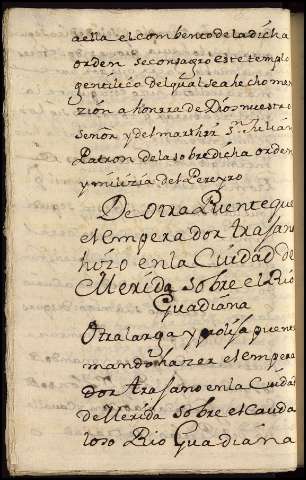 aella el combento de la dicha
orden se consagro este templo
gentilico del qual se a hecho men
zión a honrra de Dios nuestro
señor y del marthir Sn Julián
Patron de la sobre dicha orden
y milizia del Pereyro
De otra Puente que
el emperador trajano
hizo en la Ciudad de
Merida sobre el Rio
Guadiana
Otra larga y prolija puente
mando hazer el empera
dor trajano en la Ciudad
de Merida sobre el Cauda
loso Rio Guadiana